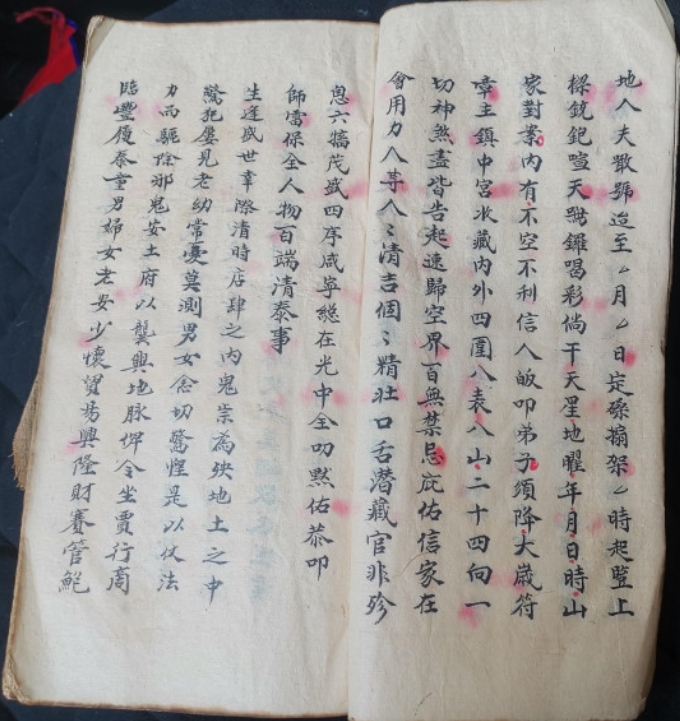 地人夫散號迨至ム月ム日定磉搧架ム時起豎上
樑銃鈀喧天點鑼喝彩倘干天星地曜年月日時山
家對業內有不空不利信人皈叩弟子須降大歲符
章主鎮中宮收藏內外四圍八表八山二十四向一
切神煞盡皆告起速歸空界百無禁忌庇佑信家在
會用力人等人〻清吉個〻精壯口舌潛藏官非殄
息六犒茂盛四序咸寧總在光中全叨默佑恭叩
師雷保全人物百端清泰事
生逢盛世幸際清時店肆之內鬼祟為殃地土之中
驚犯屢見老幼常憂莫測男女念切驚惶是以仗法
力而驅除邪鬼安土府以龔興地脉俾令坐賈行商
臨豐履泰童男婦女老安少懷貿易興隆財賽管鮑